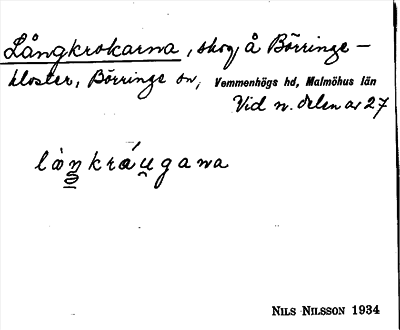 Långkrokarna, skog å Börringe-
kloster, Börringe sn, Vemmenhögs hd, Malmöhus län
Vid n. delen av 27
NILS NILSSON 1934